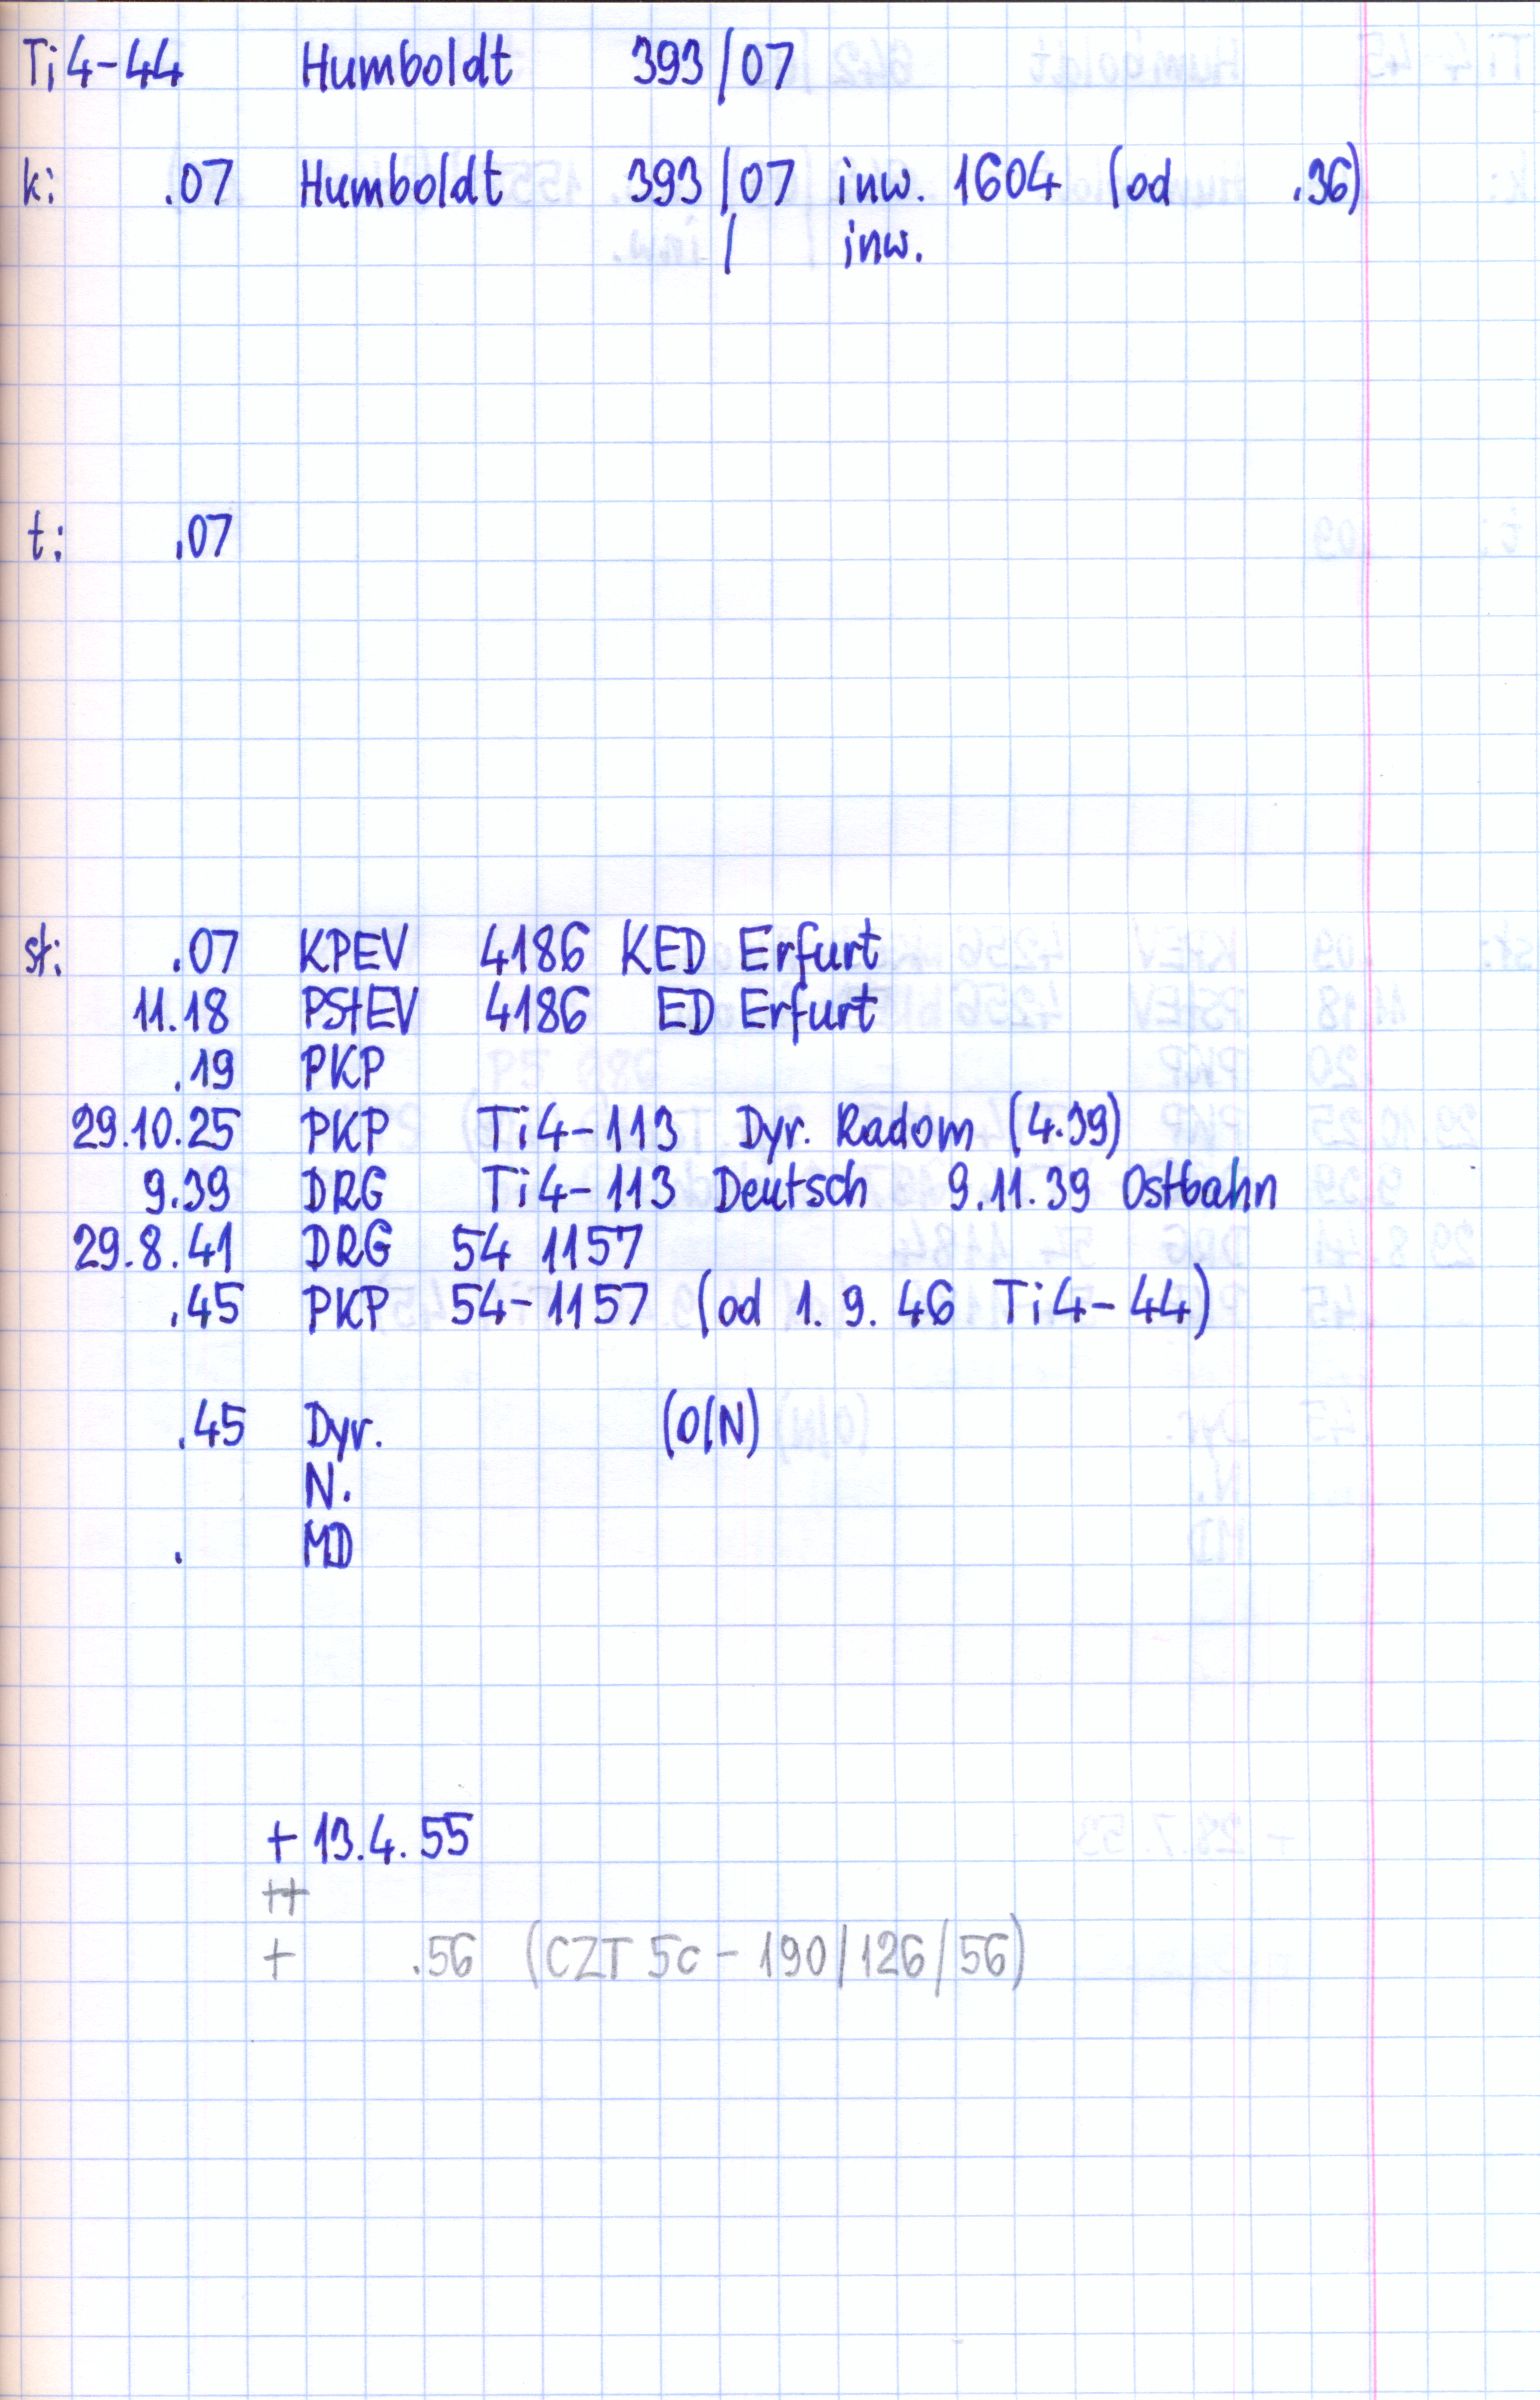 Ti4-44 Humboldt 393/07
k: .07 Humboldt 393/07 inw. 1604 (od .36)
/ inw.
t: .07
st: .07 KPEV 4186 KED Erfurt
11.18 PStEV 4186 ED Erfurt
.19 PKP
29.10.25 PKP Ti4-113 Dyr. Radom (4.39)
9.39 DRG Ti4-113 Deutsch 9.11.39 Ostbahn
29.8.41 DRG 54 1157
.45 PKP 54-1157 (od 1.9.46 Ti4-44)
.45 Dyr. (O/N)
N.
. MD
+ 13.4.55
++
+ .56 (CZT 5c - 190/126/56)